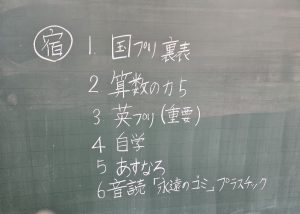 宿 1. 国プリ 裏表
2. 算数の力 5
3 英プリ(重要)
4 自学
5 あすなろ
6 音読「永遠のゴミ」プラスチック